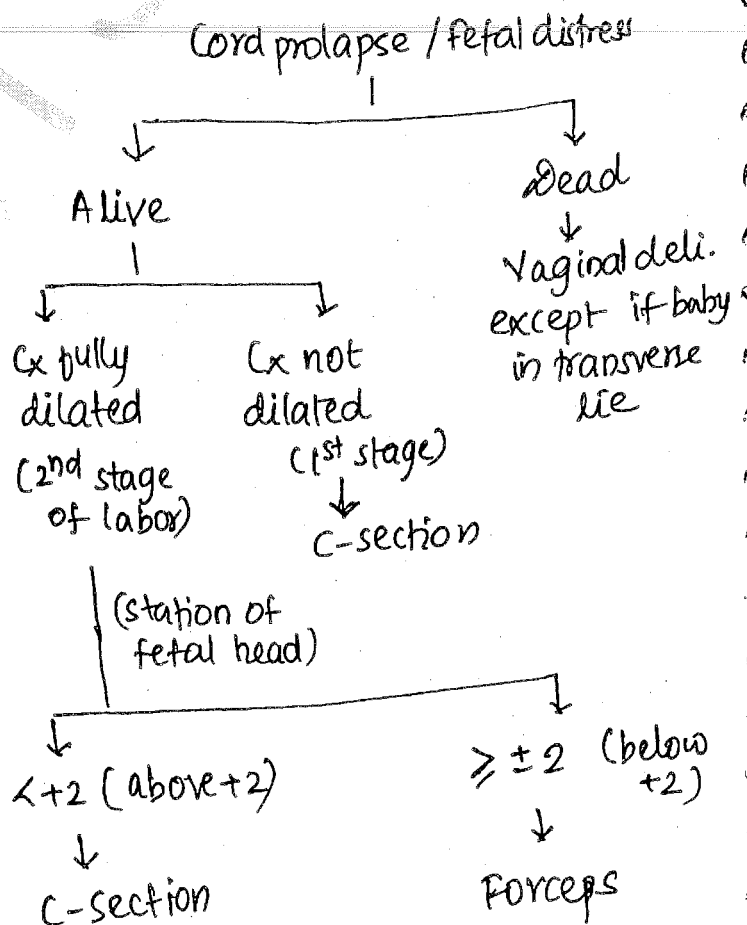 Cord prolapse / fetal distress
Alive
Dead
Vaginal deli.
except if baby
in transverse
lie
Cx fully
dilated
(2nd stage
of labor)
Cx not
dilated
(1st stage)
C-section
(station of
fetal head)
<+2 (above+2)
C-section
≥ ±2 (below
+2)
Forceps